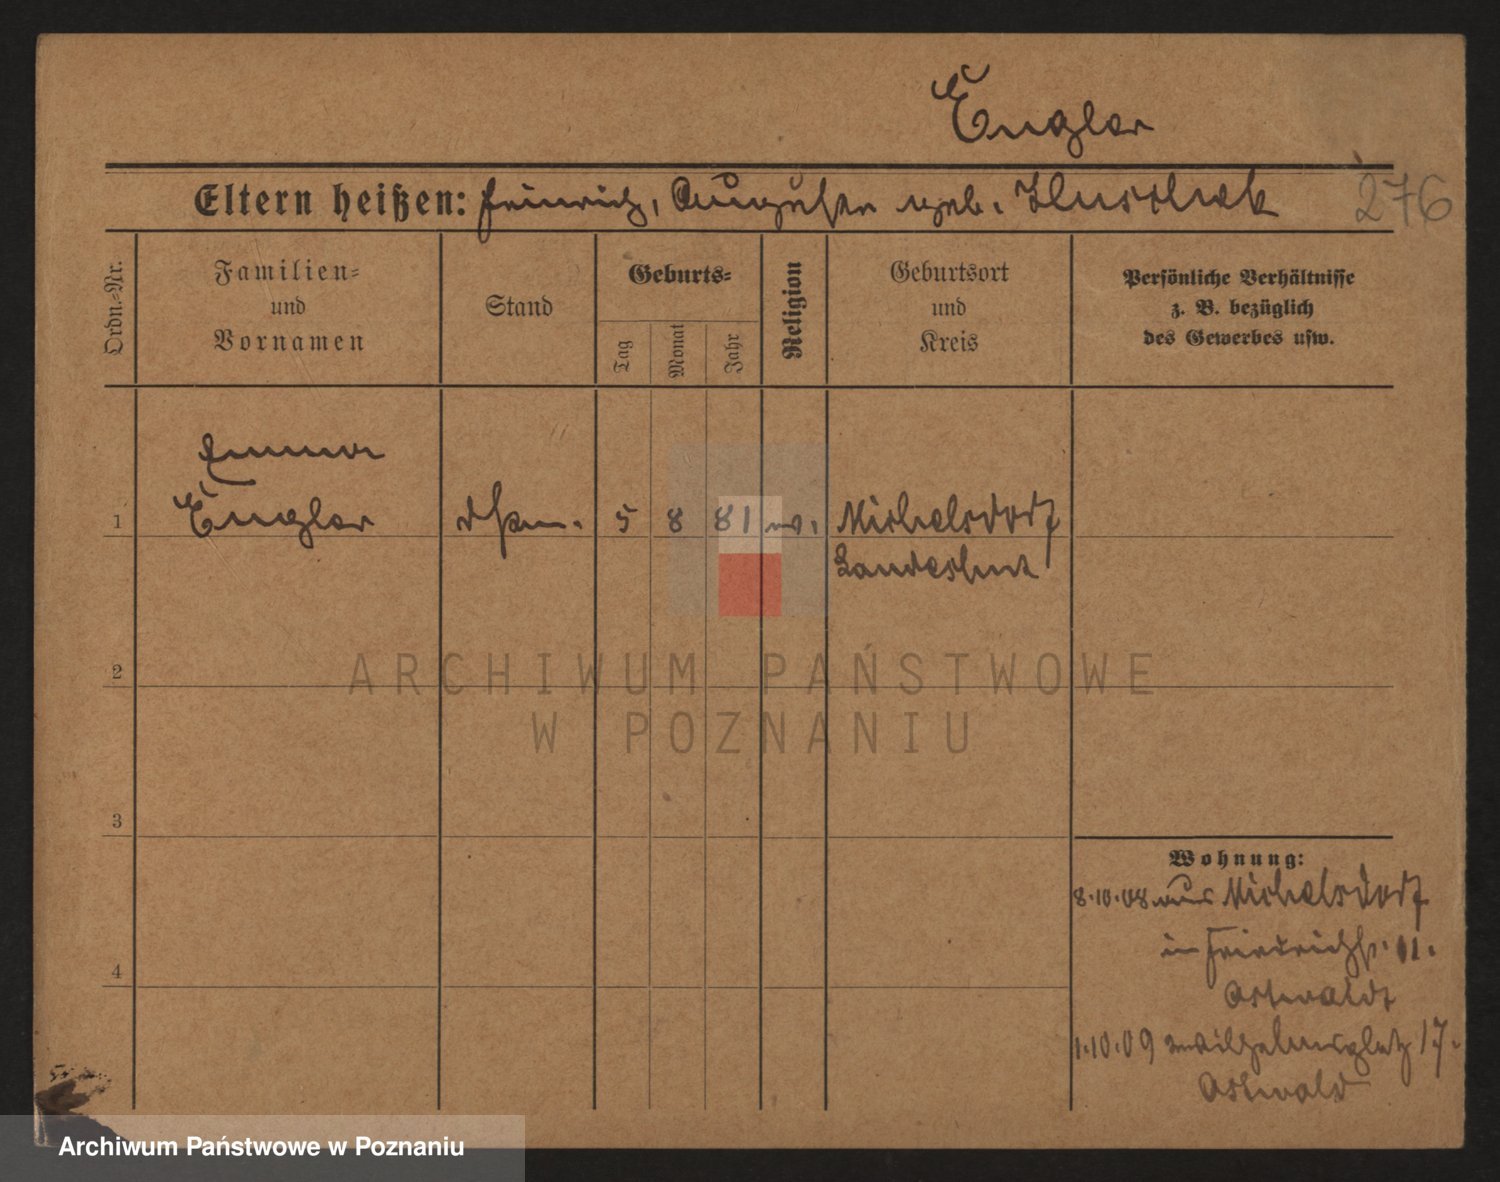 Engler
Eltern heißen: Heinrich, Auguste geb.
276
Ordn.-Nr.
Familien-
und
Vornamen
Stand
Geburts-
Tag
Monat
Jahr
Religion
Geburtsort
und
Kreis
Persönliche Verhältnisse
z. B. bezüglich
des Gewerbes usw.
Emma
1 Engler 5 8 81 Michelsdorf
Landeshut
2
3
4
Wohnung:
8.10.08 aus Michelsdorf
in Friedrichstr. 11.
Ostwaldt
1.10.09 Wilhelmsplatz 17.
Ostwald
ARCHIWUM PAŃSTWOWE
W POZNANIU
Archiwum Państwowe w Poznaniu